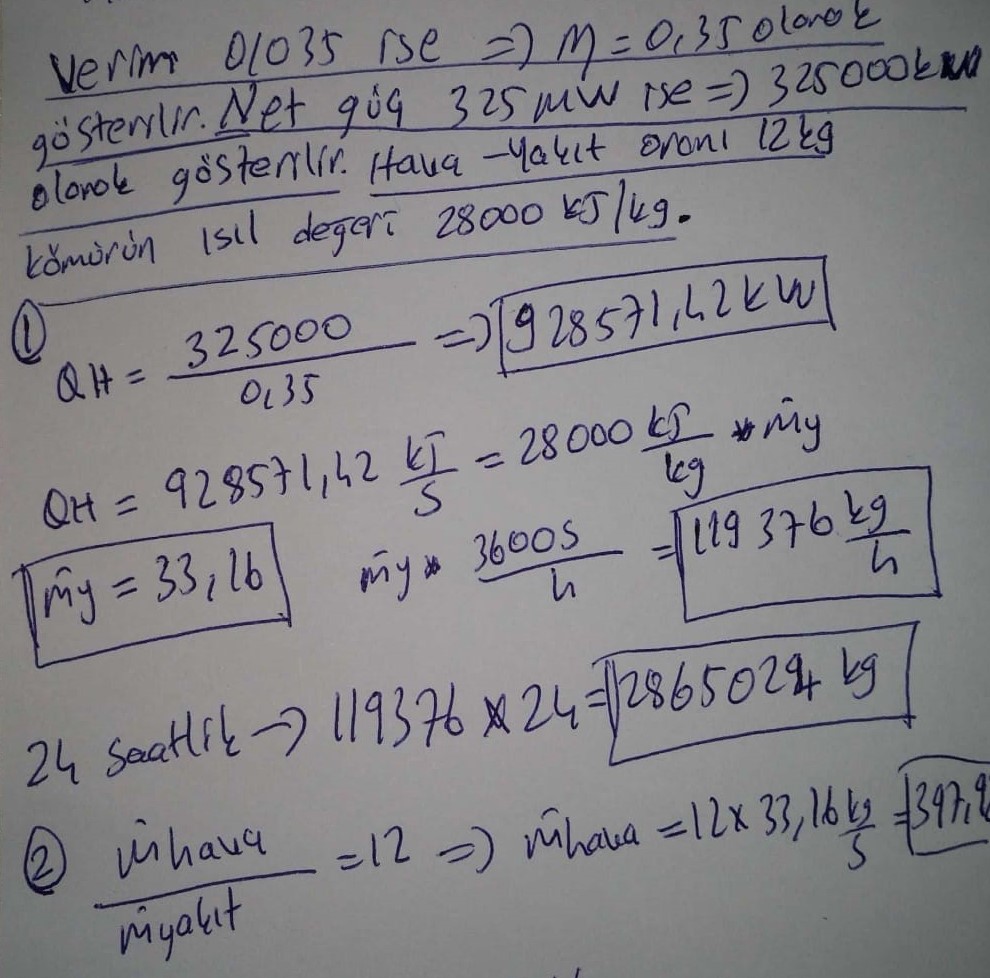 Verim 0,035 ise => η = 0,35 olarak
gösterilir. Net güç 325 MW ise => 325000 kW
olarak gösterilir. Hava-Yakıt oranı 12 kg
kömürün ısıl değeri 28000 kJ/kg.
① QH = 325000 / 0,35 => 928571,42 kW
QH = 928571,42 kJ/s = 28000 kJ/kg * ṁy
ṁy = 33,16 ṁy * 3600s/h = 119376 kg/h
24 saatlik → 119376 x 24 = 2865024 kg
② ṁhava / ṁyakıt = 12 => ṁhava = 12 x 33,16 kg/s = 397,9